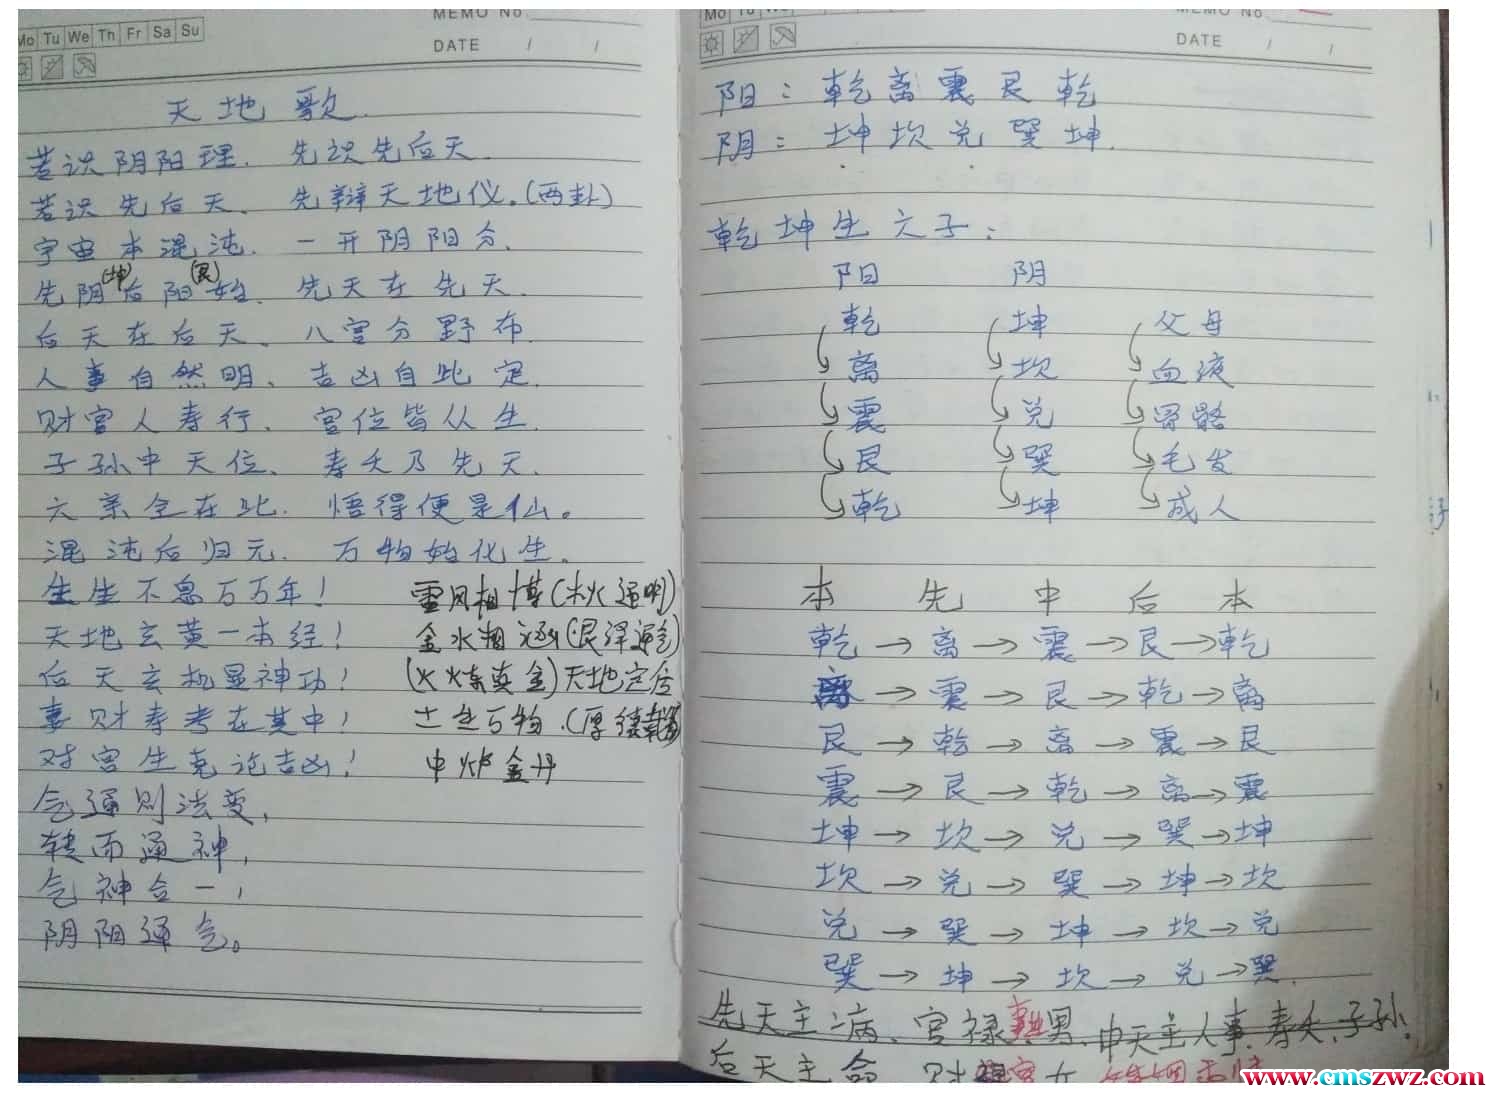 MEMO No
Mo Tu We Th Fr Sa Su
DATE / /
天地歌
若识阴阳理. 先识先后天.
若识先后天、先辩天地仪.(两卦)
宇宙本混沌. 一开阴阳分.
(坤) (艮)
先阴后阳始. 先天在先天.
后天在后天、八宫分野布.
人事自然明、吉凶自此定.
财官人寿行、宫位皆从生.
子孙中天位、寿夭乃先天.
六亲全在此. 悟得便是仙。
混沌后归元. 万物始化生.
生生不息万万年! 雷风相搏(木火通明)
天地玄黄一本经! 金水相涵(艮泽通乾)
后天玄机显神功! (火炼真金)天地定位
事财寿考在其中! 土生万物.(厚德载
对宫生克论吉凶! 中炉金丹
气通则法变,
转而通神,
气神合一,
阴阳通气。
MEMO No
Mo Tu We
DATE / /
阳:乾离震艮乾
阴:坤坎兑巽坤.
乾坤生六子:
阳 阴
乾 坤 父母
离 坎 血液
震 兑 骨骼
艮 巽 毛发
乾 坤 成人
本 先 中 后 本
乾→离→震→艮→乾
离→震→艮→乾→离
艮→乾→离→震→艮
震→艮→乾→离→震
坤→坎→兑→巽→坤
坎→兑→巽→坤→坎
兑→巽→坤→坎→兑
巽→坤→坎→兑→巽.
先天主病、官禄 男、中天主人事.寿夭.子孙.
后天主命 财 女
www.cmszwz.com